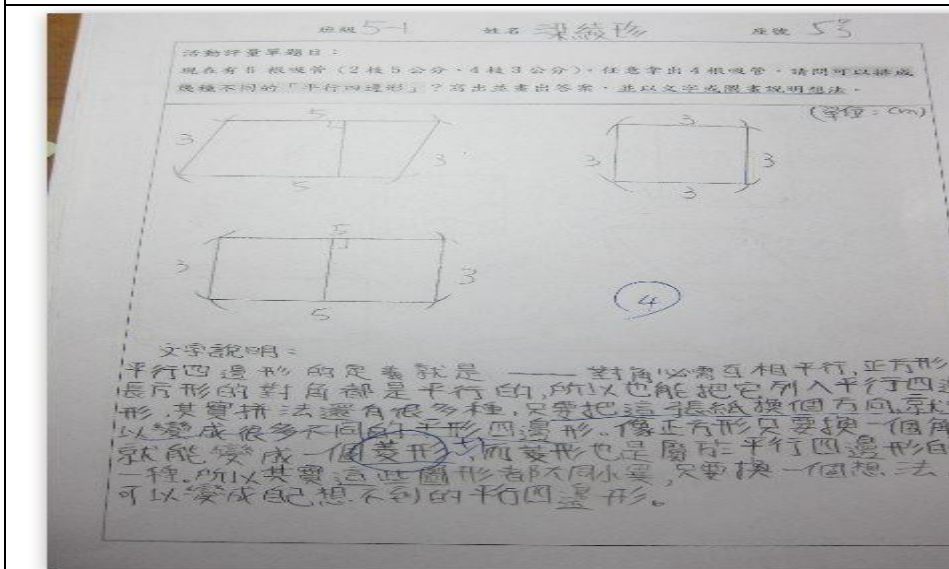 班級 5-1 姓名 梁絞珍 座號 53
活動評量單題目:
現在有6根吸管(2枝5公分、4枝3公分),任意拿出4根吸管,請問可以排成
幾種不同的「平行四邊形」?寫出並畫出答案,並以文字或圖畫說明想法。
(單位:cm)
5
3
3
5
3
3
3
3
5
3
3
5
4
文字說明:
平行四邊形的定義就是——對角必需互相平行,正方形
長方形的對角都是平行的,所以也能把它列入平行四邊
形,其實拼法還有很多種,只要把這張紙換個方向,就
以變成很多不同的平形四邊形。像正方形只要換一個角
就能變成一個菱形,而菱形也是屬於平行四邊形
一種。所以其實這些圖形都不同小要,只要換一個想法
可以變成自己想不到的平行四邊形。